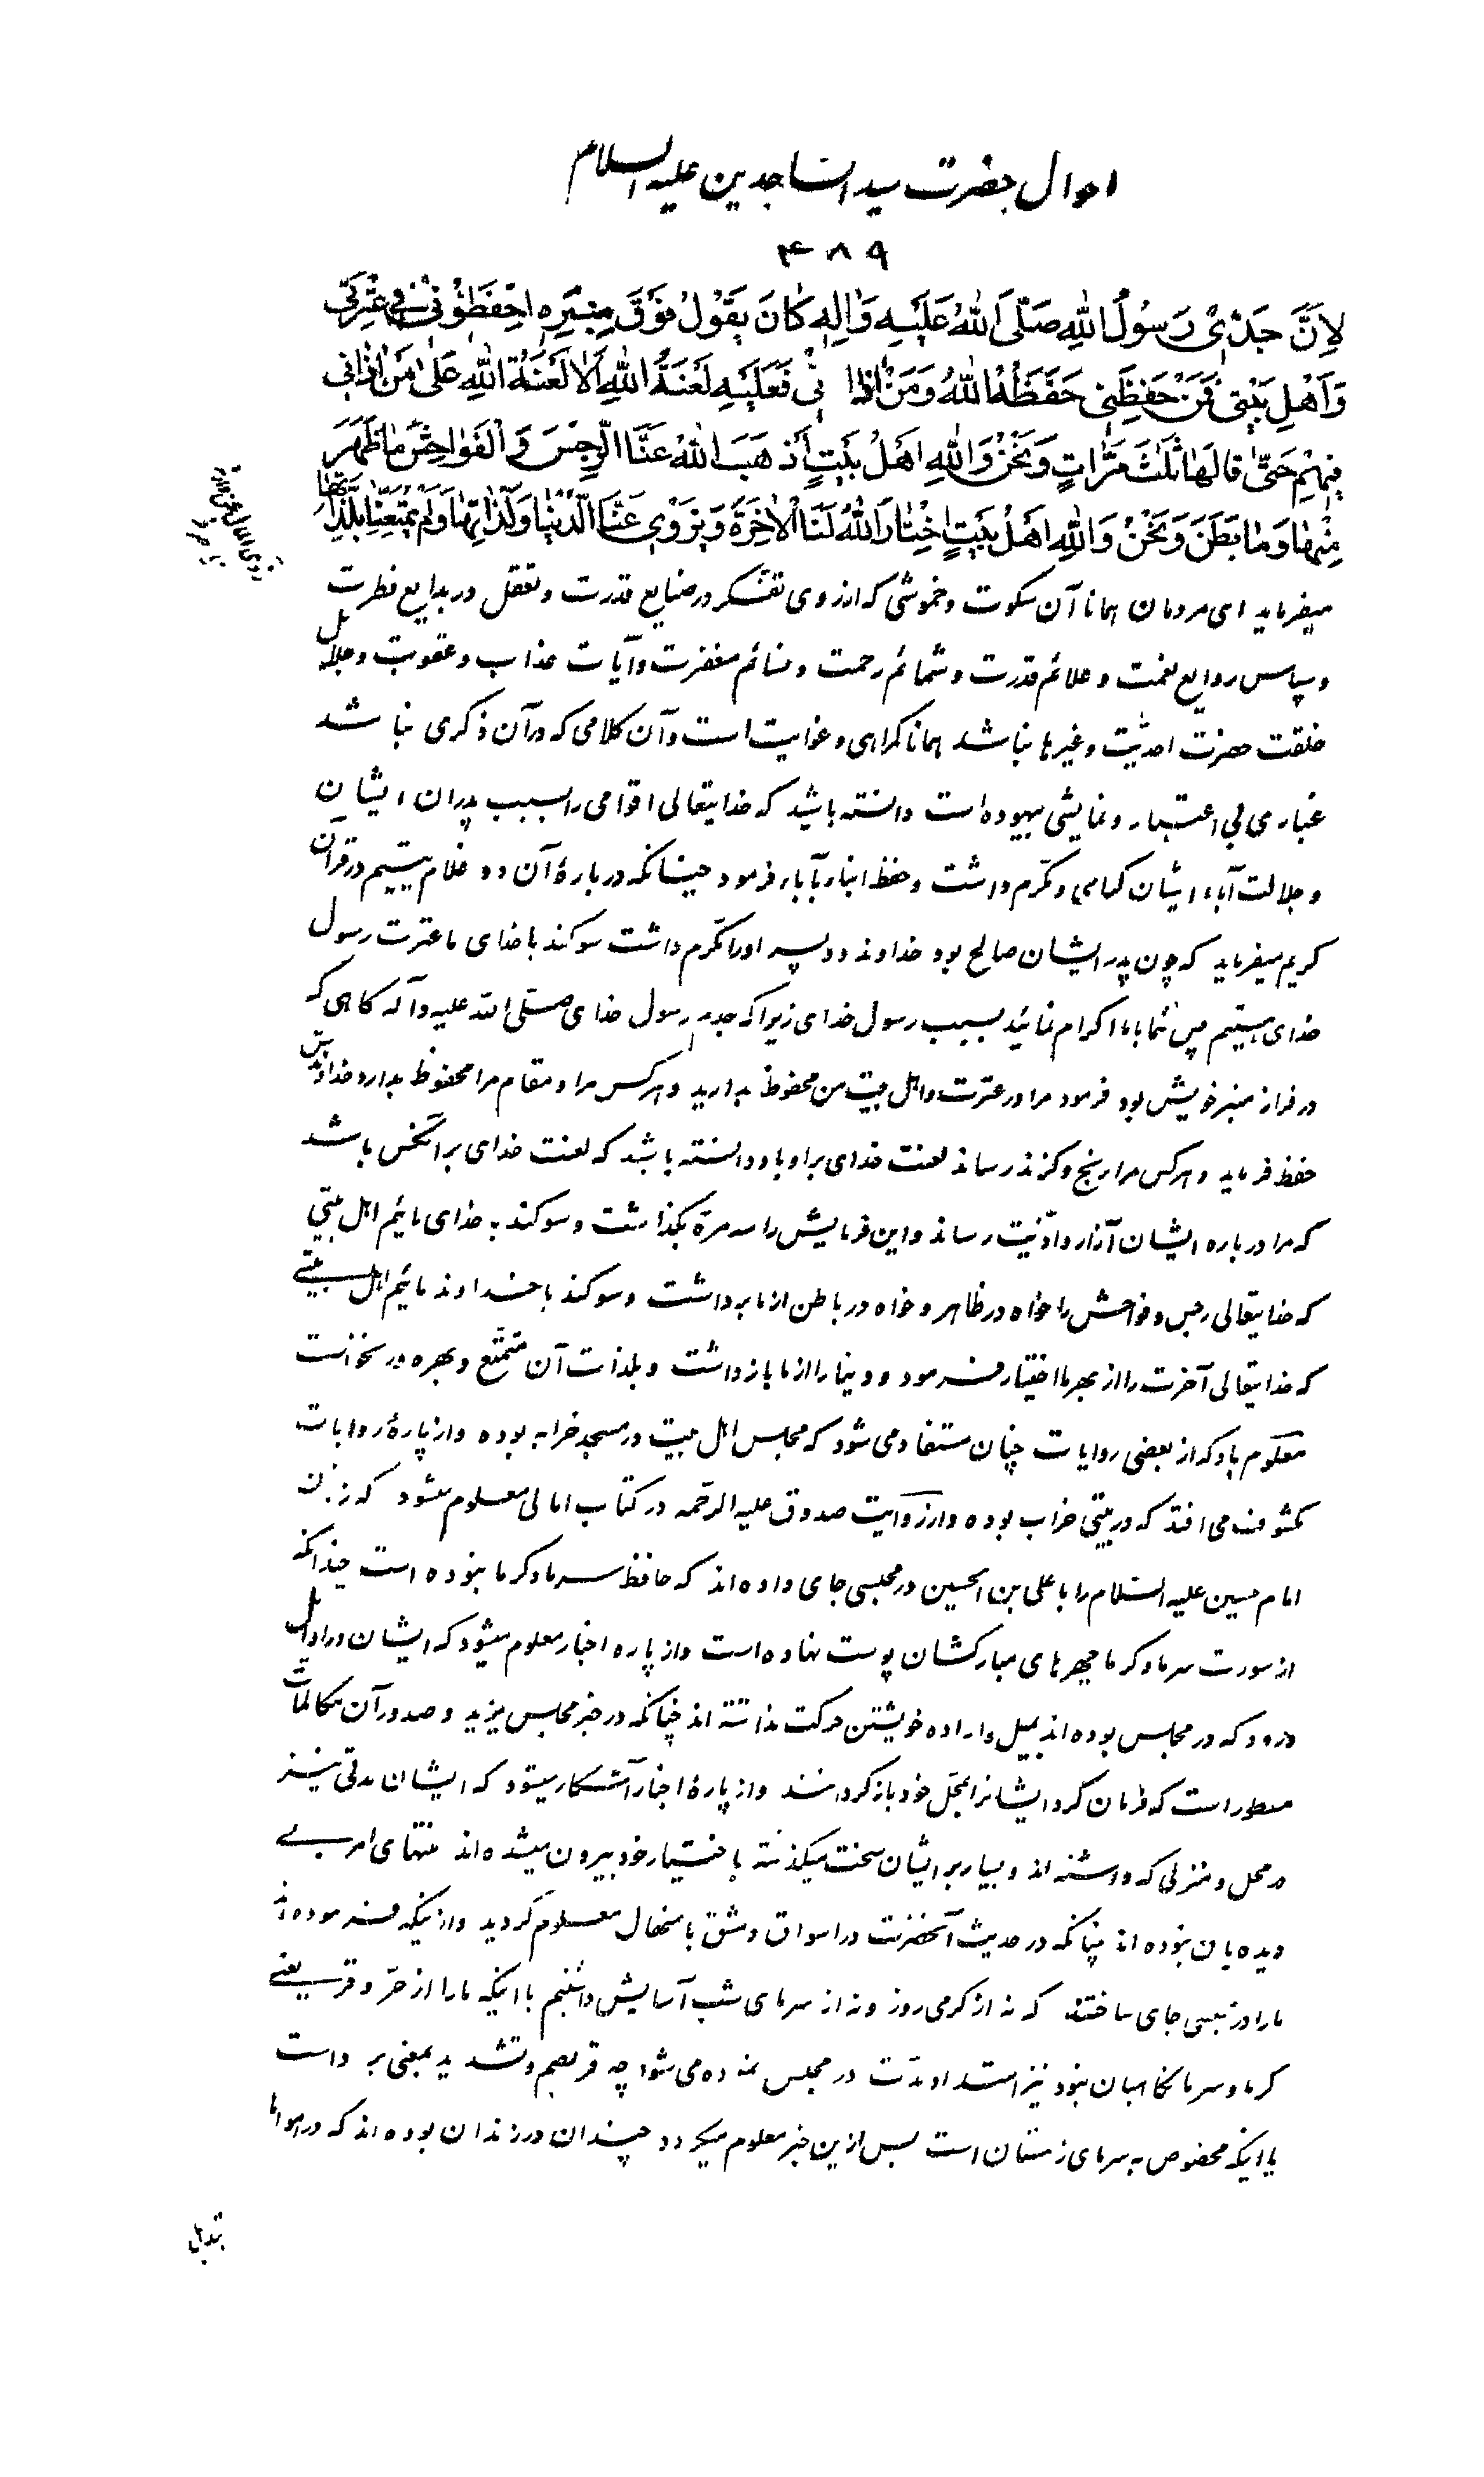 احوال حضرت سید الساجدین علیه السلام
۴۸۹
لِاَنَّ جَدّی رَسُولُ اللهِ صَلَّی اللهُ عَلَیْهِ وَاٰلِهِ کٰانَ یَقُولُ فَوْقَ مِنْبَرِهِ احْفَظُوْنی فی عِتْرَتی
وَاَهْلِ بَیْتی فَمَنْ حَفِظَنی حَفَظَهُ اللهُ وَمَنْ اٰذانی فَعَلَیْهِ لَعْنَةُ اللهِ اَلاٰ لَعْنَةُ اللهِ عَلیٰ مَنْ اٰذانی
فیهِمْ حَتّیٰ قالَهٰا ثَلٰثَ مَرّٰاتٍ وَنَحْنُ وَاللهِ اَهْلُ بَیْتٍ اَذْهَبَ اللهُ عَنَّا الرِّجْسَ وَالْفَوٰاحِشَ مٰا ظَهَرَ
مِنْهٰا وَمٰا بَطَنَ وَنَحْنُ وَاللهِ اَهْلُ بَیْتٍ اخْتٰارَ اللهُ لَنَا الْاٰخِرَةَ وَیَزْوی عَنَّا الدُّنْیٰا وَلَذّٰاتِهٰا وَلَمْ یُمَتِّعْنٰا بِلَذّٰاتِهٰا
میفرماید ای مردمان همانا آن سکوت و خموشی که از روی تفکر در صنایع قدرت و تعقل در بدایع فطرت
و سپاس روایع نعمت و علائم قدرت و شمائم رحمت و نسائم مغفرت و آیات عذاب و عقوبت و
خلقت حضرت احدیّت و غیرها نباشد همانا گمراهی و غوایت است و آن کلامی که در آن ذکری نباشد
غباری بی اعتبار و نمایشی بیهوده است دانسته باشید که خدایتعالی اقوامی را بسبب پدران ایشان
و جلالت آباء ایشان گرامی و مکرّم داشت و حفظ ابناء بآباء فرمود چنانکه دربارهٔ آن دو غلام یتیم در قرآن
کریم میفرماید که چون پدر ایشان صالح بود خداوند دو پسر او را مکرّم داشت سوگند با خدای ما عترت رسول
خدای هستیم پس شما با ما اکرام نمائید بسبب رسول خدای زیرا که جدم رسول خدای صلّی الله علیه و آله گاهی که
در فراز منبر خویش بود فرمود مرا در عترت و اهل بیت من محفوظ بدارید و هر کس مرا و مقام مرا محفوظ بدارد خداوندش
حفظ فرماید و هر کس مرا رنج و گزند رساند لعنت خدای بر او باد و دانسته باشید که لعنت خدای بر آنکس باشد
که مرا درباره ایشان آزار و اذّیت رساند و این فرمایش را سه مرّة بگذاشت و سوگند به خدای مائیم اهل بیتی
که خدایتعالی رجس و فواحش را خواه در ظاهر و خواه در باطن از ما برداشت و سوگند با خداوند مائیم اهل بیتی
که خدایتعالی آخرت را از بهر ما اختیار فرمود و دنیا را از ما بازداشت و بلذات آن متمتّع و بهره ور نخواست
معلوم باد که از بعضی روایات چنان مستفاد می شود که محابس اهل بیت در مسجد خرابه بوده و از پارهٔ روایات
مکشوف می افتد که در بیتی خراب بوده و از روایت صدوق علیه الرحمه در کتاب امالی معلوم میشود که زنان
امام حسین علیه السّلام را با علی بن الحسین در محبسی جای داده اند که حافظ سرما و گرما نبوده است چندانکه
از سورت سرما و گرما چهرهای مبارکشان پوست نهاده است و از پاره اخبار معلوم میشود که ایشان در اوایل
ورود که در محابس بوده اند بمیل و اراده خویشتن حرکت نداشته اند چنانکه در خبر مجلس یزید و صدور آن مکالمات
مسطور است که فرمان کرد ایشانرا بمحل خود بازگردانند و از پارهٔ اخبار آشکار میشود که ایشان مدتی نیز
در محل و منزلی که داشته اند و بسیار بر ایشان سخت میگذشته باختیار خود بیرون میشده اند منتهای امر بی
دیده بان نبوده اند چنانکه در حدیث آنحضرت در اسواق دمشق با منهال معلوم گردید و از اینکه فرموده اند
ما را در محبسی جای ساختند که نه از گرمی روز و نه از سرمای شب آسایش داشتیم با اینکه ما را از حرّ و قر یعنی
گرما و سرما نگاهبان نبود نیز امتداد مدّت در محبس نموده می شود چه قر بضم و تشدید بمعنی برد است
یا اینکه مخصوص به سرمای زمستان است پس ازین خبر معلوم میگردد چندان در زندان بوده اند که در هوا
تبدیل